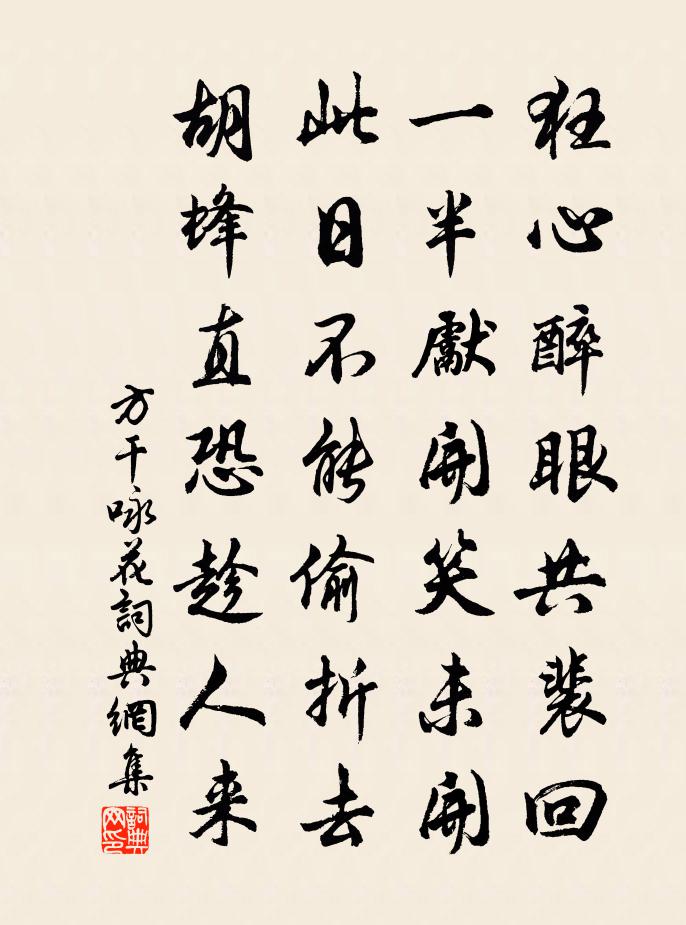 狂心醉眼共裴回
一半獻開笑未開
此日不能偷折去
胡蜂直恐趁人来
方干咏花詞典網集
詞典
网印